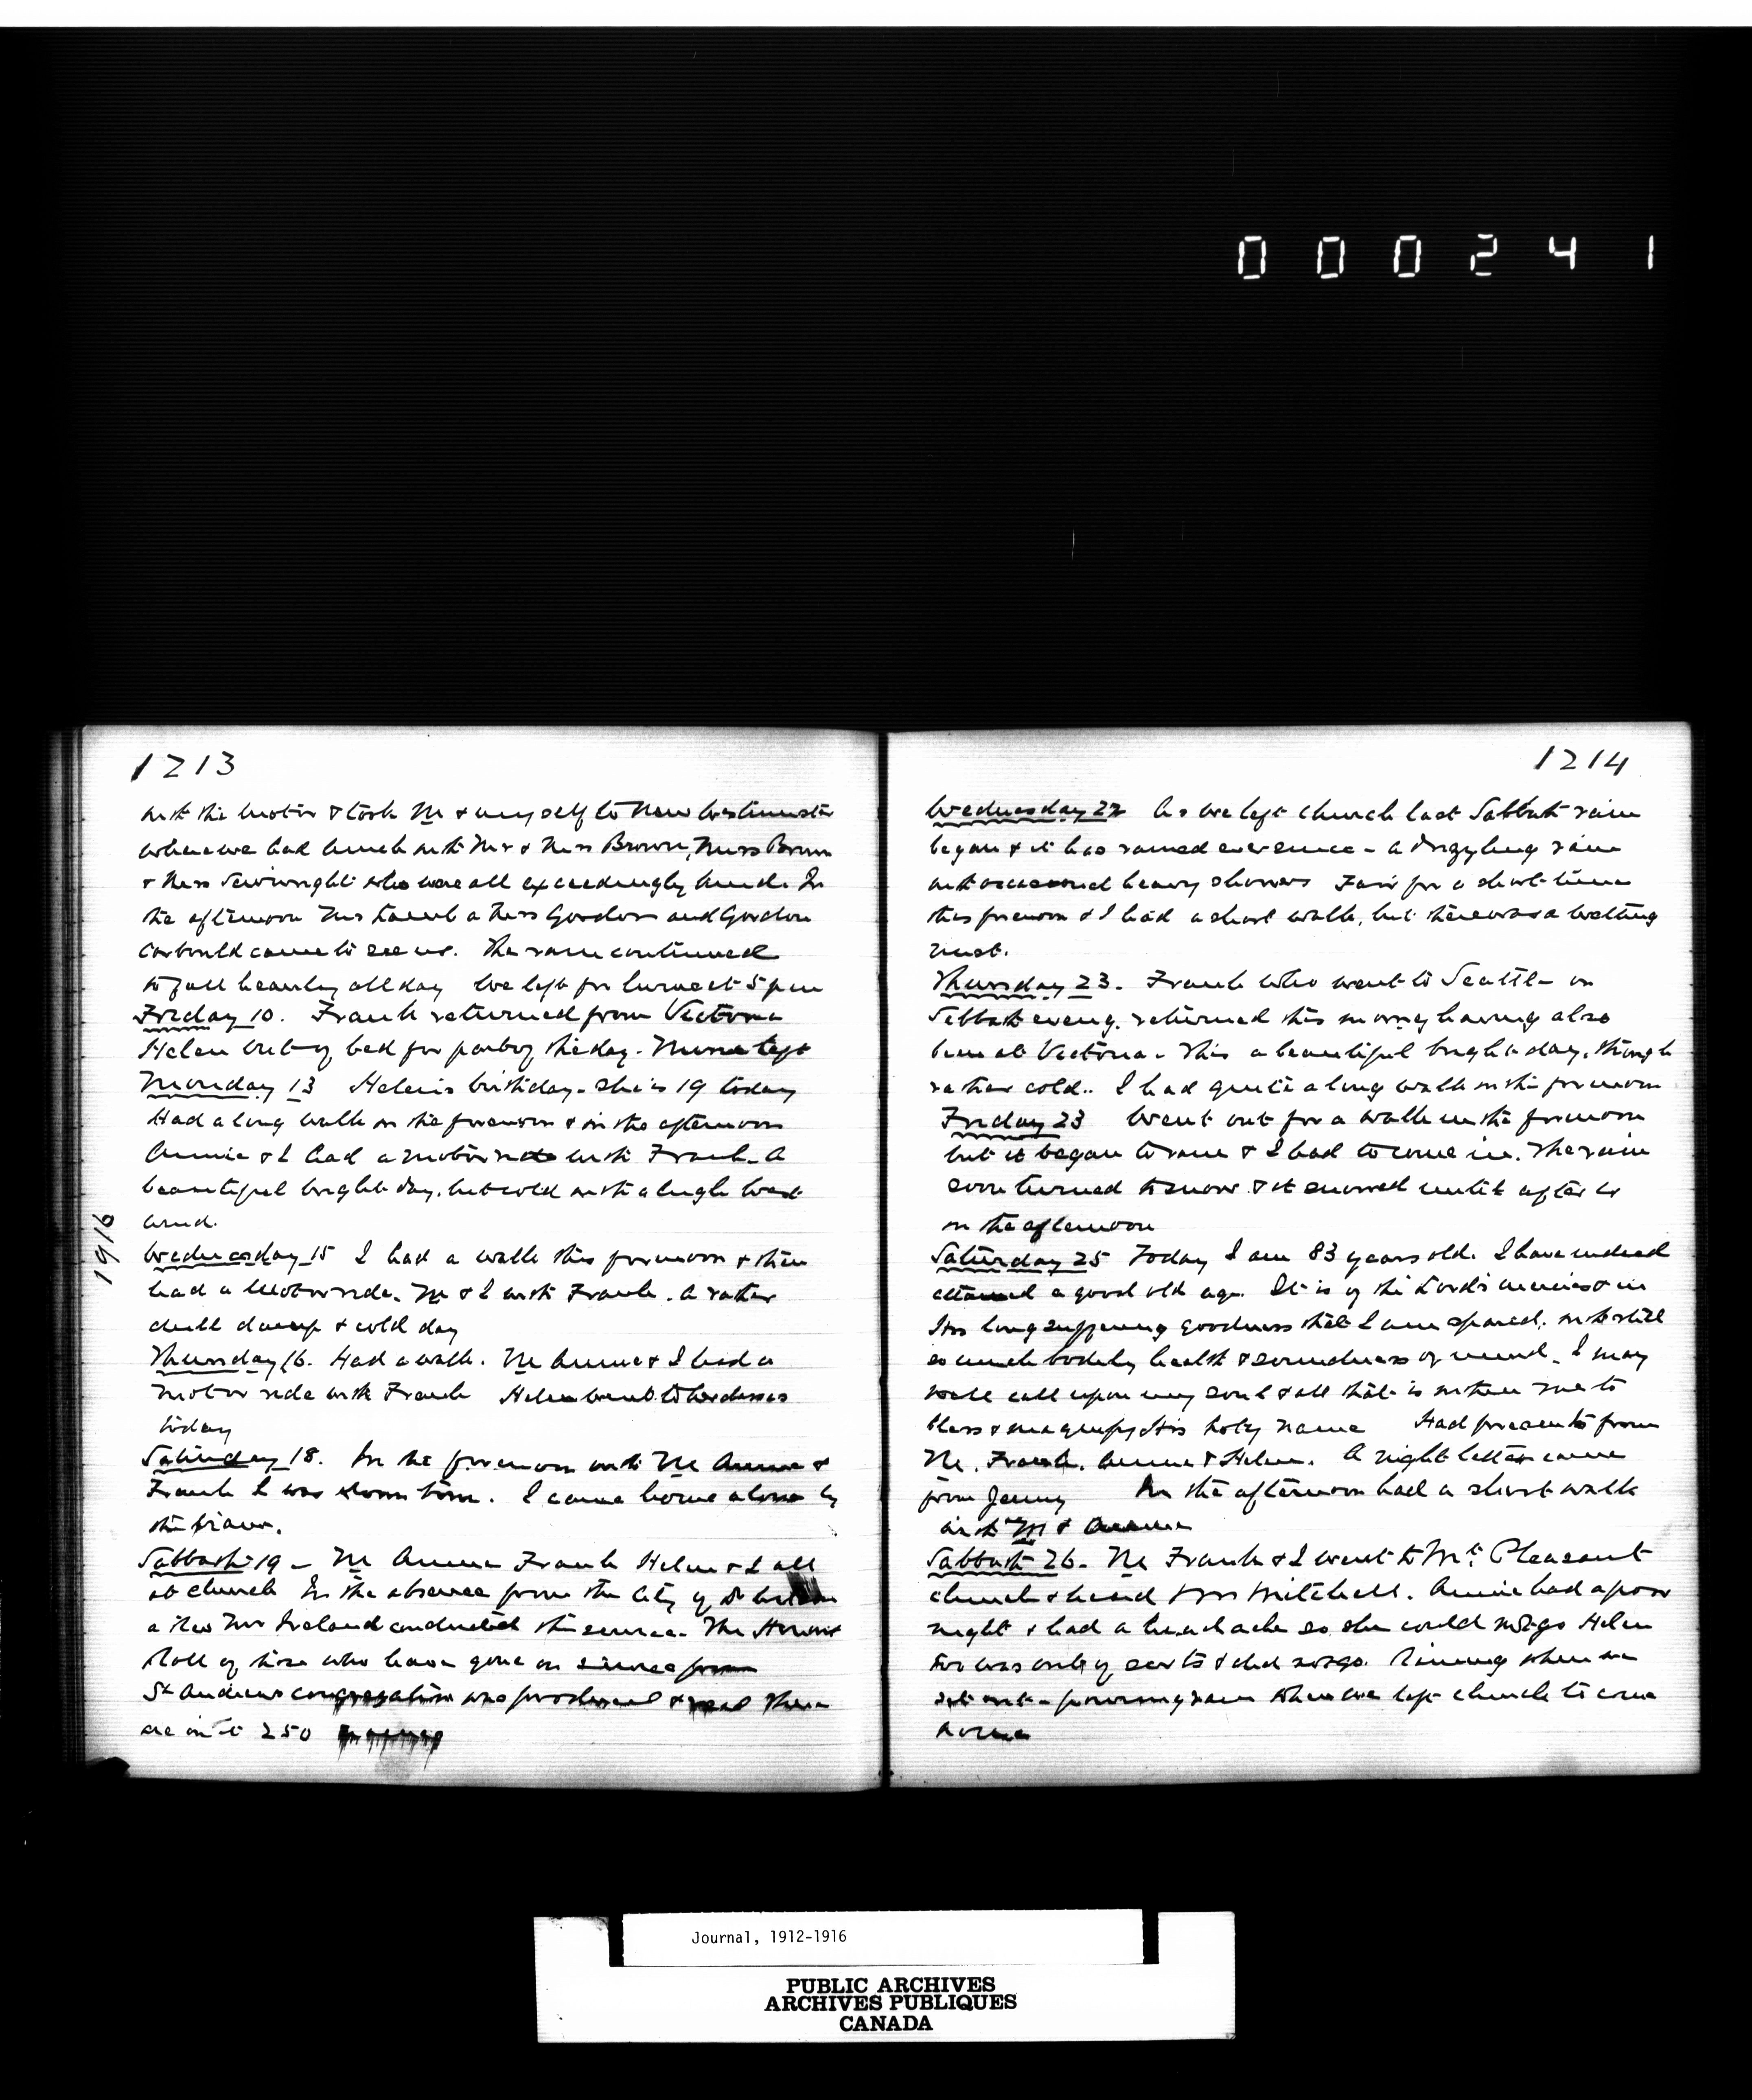 000241
1213
with the motor & took M & myself to New Westminster
where we had lunch with Mr & Mrs Brown, Miss Brown
& Miss Seivwright who were all exceedingly kind. In
the afternoon Mrs a Miss Gordon and Gordon
Corbould came to see us. The rain continued
to fall heavily all day We left for home at 5 pm
Friday 10. Frank returned from Victoria
Helen out of bed for part of the day. Nurse left
Monday 13 Helen's birthday. She is 19 today
Had a long walk in the forenoon & in the afternoon
Annie & I had a motor ride with Frank. A
beautiful bright day, but cold with a high west
wind.
1916
Wednesday 15 I had a walk this forenoon & then
had a motor ride. M & I with Frank. A rather
chill damp & cold day
Thursday 16. Had a walk. M Annie & I had a
motor ride with Frank Helen went to her classes
today
Saturday 18. In the forenoon with M Annie &
Frank I was down town. I came home alone by
the tram.
Sabbath 19 – M Annie Frank Helen & I all
at church In the absence from the City of Dr
a Rev Mr Ireland conducted the service. The Honour
Roll of those who have gone on service from
St Andrews congregation was produced & read There
are in it 250
1214
Wednesday 22 As we left church last Sabbath rain
began & it has rained ever since – a drizzling rain
with occasional heavy showers Fair for a short time
this forenoon & I had a short walk, but there was a wetting
mist.
Thursday 23. Frank who went to Seattle on
Sabbath eveng. returned this morng having also
been at Victoria. This a beautiful bright day, though
rather cold.. I had quite a long walk in the forenoon
Friday 23 Went out for a walk in the forenoon
but it began to rain & I had to come in. The rain
soon turned to snow & it snowed until after 4
in the afternoon
Saturday 25 Today I am 83 years old. I have indeed
attained a good old age. It is of the Lord's mercies & in
His long suffering goodness that I am spared, with still
so much bodily health & soundness of mind. I may
well call upon my soul & all that is within me to
bless & magnify His holy name Had presents from
M, Frank, Annie & Helen. A night letter came
from Jenny In the afternoon had a short walk
with M & Annie
Sabbath 26. M Frank & I went to Mt. Pleasant
church & heard Mr Mitchell. Annie had a poor
night & had a headache so she could not go Helen
too was out of sorts & did not go. Raining when we
set out – pouring rain when we left church to come
home
Journal, 1912-1916
PUBLIC ARCHIVES
ARCHIVES PUBLIQUES
CANADA